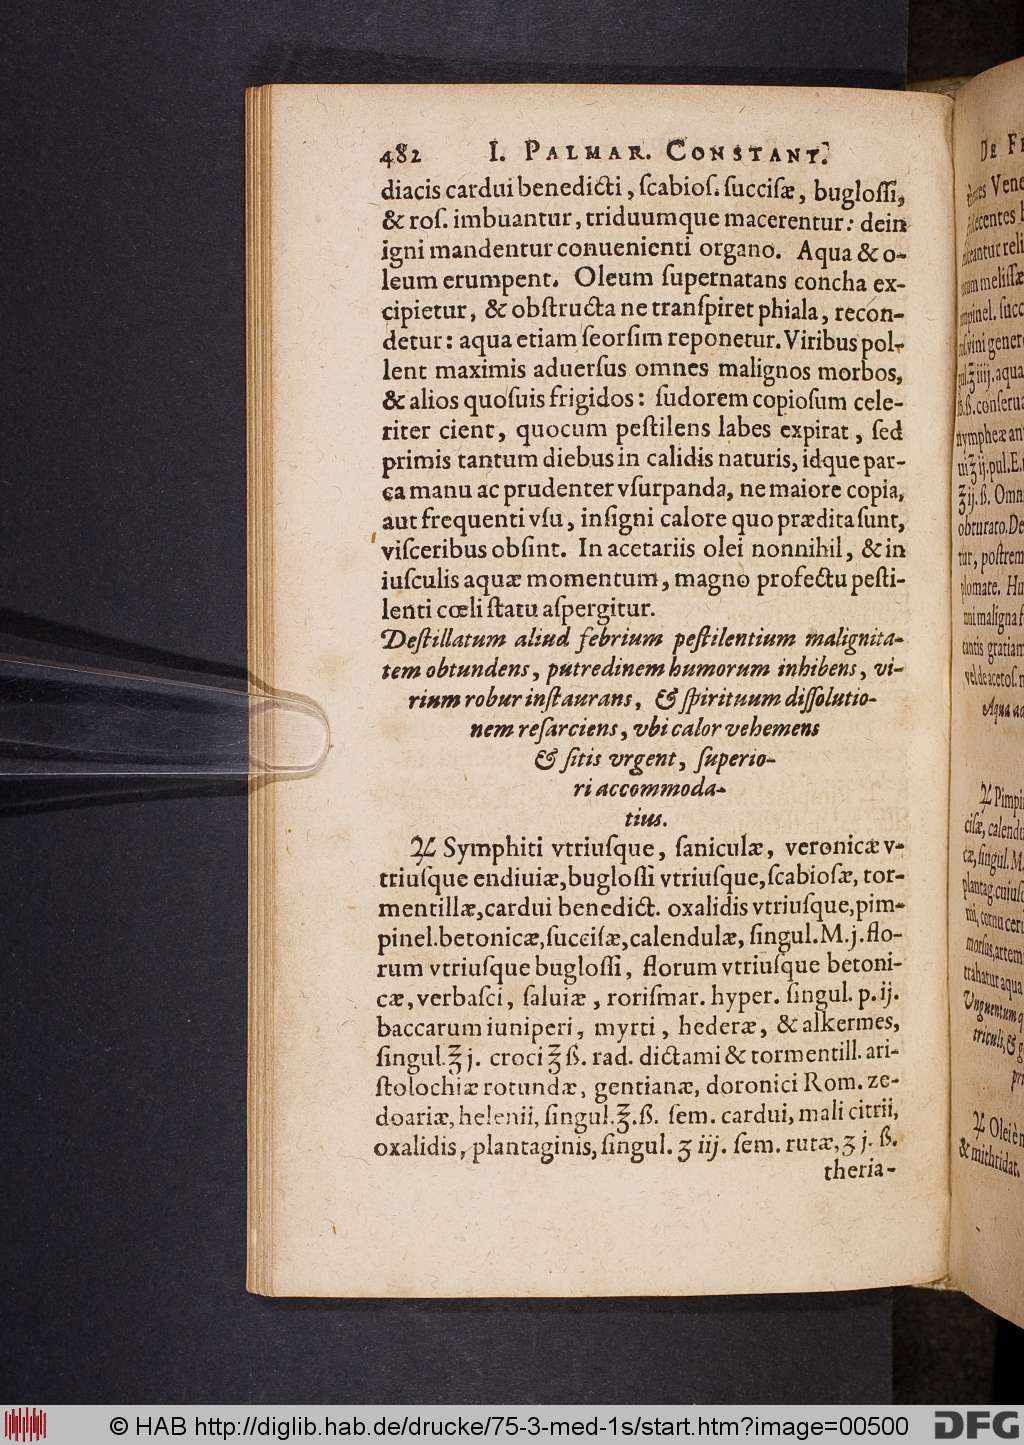 482 I. PALMAR. CONSTANT.
diacis cardui benedicti, ſcabioſ. ſucciſæ, bugloſſi,
& roſ. imbuantur, triduumque macerentur: dein
igni mandentur conuenienti organo. Aqua & o-
leum erumpent. Oleum ſupernatans concha ex-
cipietur, & obſtructa ne tranſpiret phiala, recon-
detur: aqua etiam ſeorſim reponetur. Viribus pol-
lent maximis aduerſus omnes malignos morbos,
& alios quoſuis frigidos: ſudorem copioſum cele-
riter cient, quocum peſtilens labes expirat, ſed
primis tantum diebus in calidis naturis, idque par-
ca manu ac prudenter vſurpanda, ne maiore copia,
aut frequenti vſu, inſigni calore quo prædita ſunt,
viſceribus obſint. In acetariis olei nonnihil, & in
iuſculis aquæ momentum, magno profectu peſti-
lenti cœli ſtatu aſpergitur.
Deſtillatum aliud febrium peſtilentium malignita-
tem obtundens, putredinem humorum inhibens, vi-
rium robur inſtaurans, & ſpirituum diſſolutio-
nem reſarciens, vbi calor vehemens
& ſitis vrgent, ſuperio-
ri accommoda-
tius.
♃ Symphiti vtriuſque, ſaniculæ, veronicæ v-
triuſque endiuiæ, bugloſſi vtriuſque, ſcabioſæ, tor-
mentillæ, cardui benedict. oxalidis vtriuſque, pim-
pinel. betonicæ, ſucciſæ, calendulæ, ſingul. M. j. flo-
rum vtriuſque bugloſſi, florum vtriuſque betoni-
cæ, verbaſci, ſaluiæ, roriſmar. hyper. ſingul. p. ij.
baccarum iuniperi, myrti, hederæ, & alkermes,
ſingul. ℥ j. croci ℥ ß. rad. dictami & tormentill. ari-
ſtolochiæ rotundæ, gentianæ, doronici Rom. ze-
doariæ, helenii, ſingul. ℥. ß. ſem. cardui, mali citrii,
oxalidis, plantaginis, ſingul. ʒ iij. ſem. rutæ, ʒ j. ß.
theria-
DE
Vene
nympheæ
℥ ij. ß. Omni
obturato. De
Aqua
♃ Pimpi
ciſæ, calendu
cæ, ſingul. M.
♃ Olei
& mithridat.
© HAB http://diglib.hab.de/drucke/75-3-med-1s/start.htm?image=00500
DFG